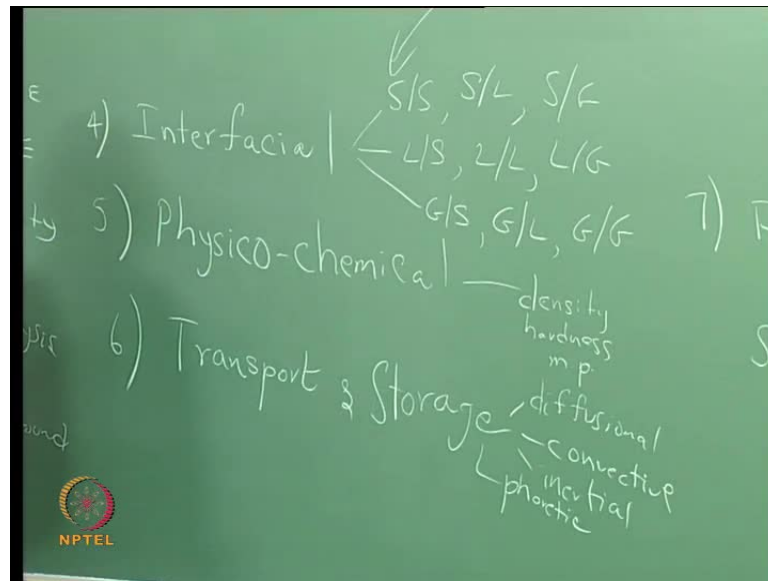 E
S/S, S/L, S/G
4) Interfacial L/S, L/L, L/G
G/S, G/L, G/G
ty 5) Physico-chemical density
hardness
m.p.
7)
6) Transport & Storage diffusional
convective
inertial
phoretic
NPTEL